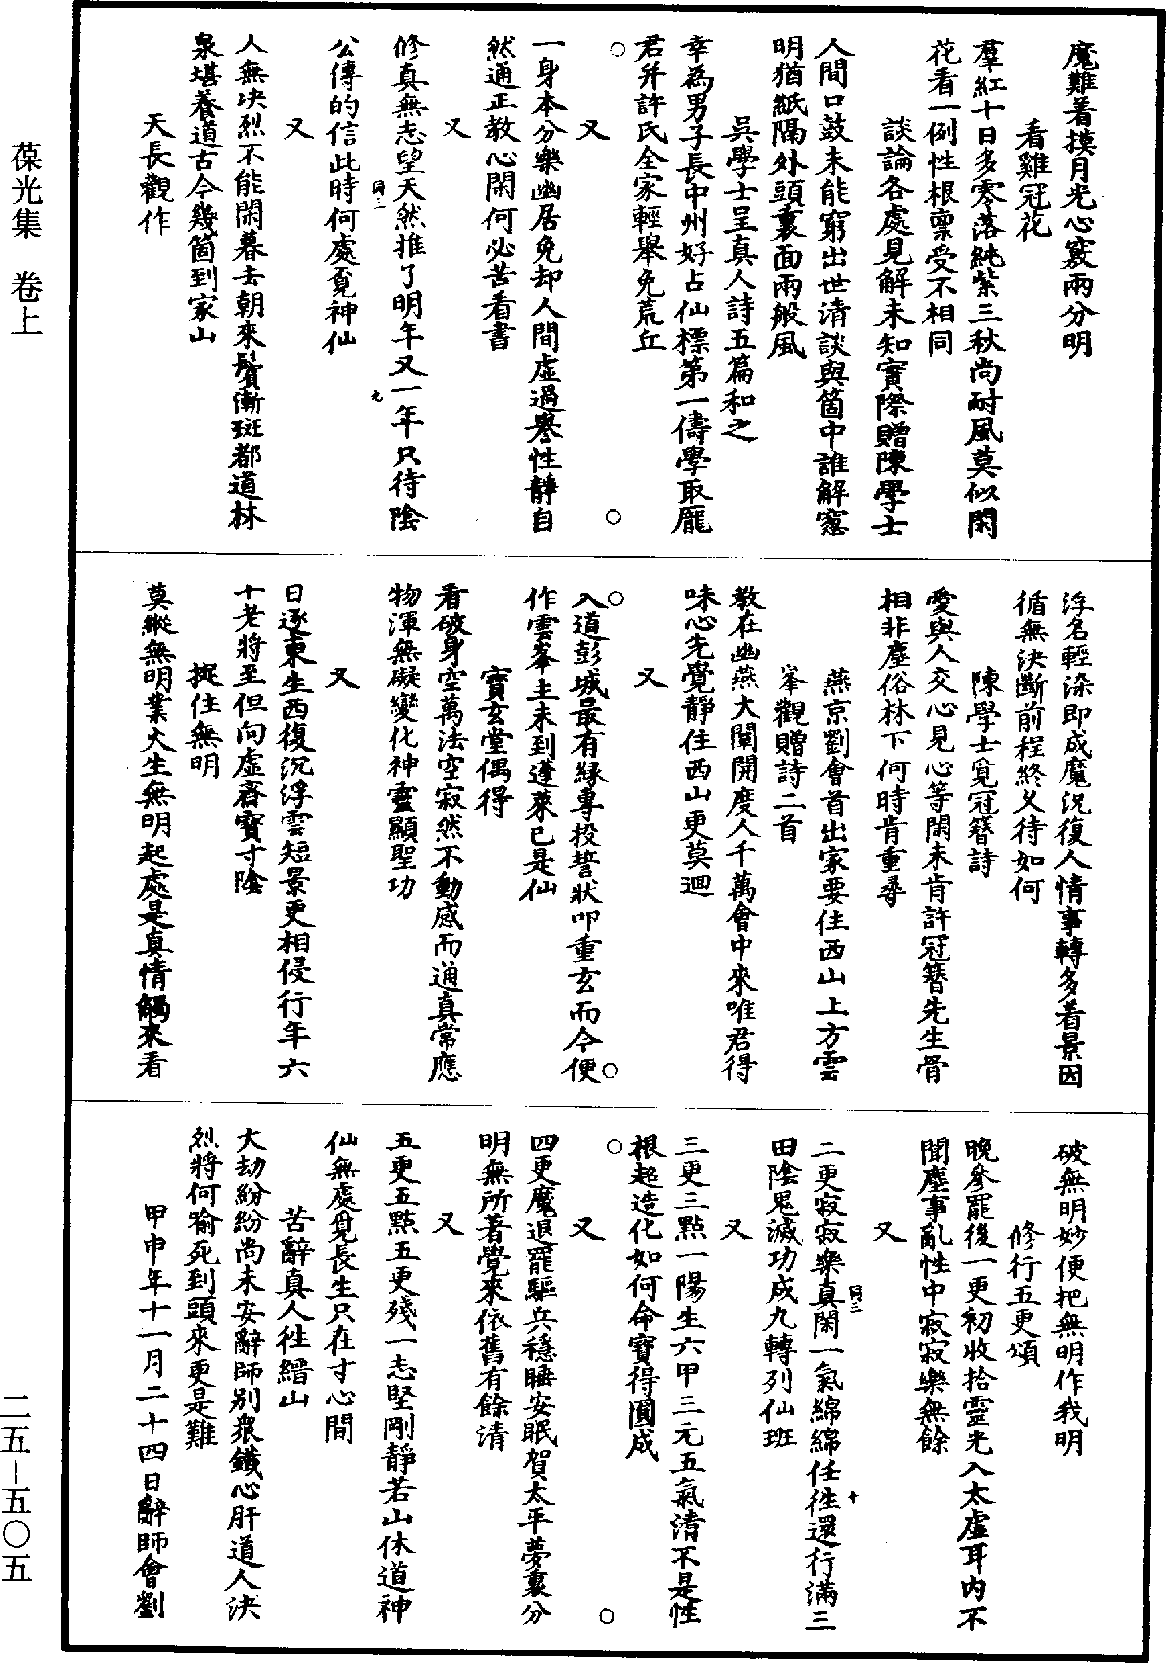 葆光集　卷上
魔難着摸月光心竅兩分明
看雞冠花
羣紅十日多零落純紫三秋尚耐風莫似閑
花看一例性根禀受不相同
談論各處見解未知實際贈陳學士
人間口鼓未能窮出世清談與箇中誰解窻
明猶紙隔外頭裏面兩般風
吳學士呈真人詩五篇和之
幸為男子長中州好占仙標第一儔學取龐
君并許氏全家輕舉免荒丘
又
一身本分樂幽居免却人間虛過譽性靜自
然通正教心閑何必苦看書
又
修真無志望天然推了明年又一年只待陰
公傳的信此時何處覔神仙
又
人無决烈不能閑暮去朝來鬢漸斑都道林
泉堪養道古今幾箇到家山
天長觀作
浮名輕染即成魔況復人情事轉多着景因
循無決斷前程終久待如何
陳學士覓冠簪詩
愛與人交心見心等閑未肯許冠簪先生骨
相非塵俗林下何時肯重尋
燕京劉會首出家要住西山上方雲
峯觀贈詩二首
教在幽燕大闡開度人千萬會中來唯君得
味心先覺靜住西山更莫迴
又
入道彭城最有緣專投誓狀叩重玄而今便
作雲峯主未到蓬萊已是仙
寶玄堂偶得
看破身空萬法空寂然不動感而通真常應
物渾無礙變化神靈顯聖功
又
日逐東生西復沉浮雲短景更相侵行年六
十老將至但向虛齋寶寸陰
捉住無明
莫縱無明業火生無明起處是真情觸來看
破無明妙便把無明作我明
修行五更頌
晚參罷後一更初收拾靈光入太虛耳內不
聞塵事亂性中寂寂樂無餘
又
二更寂寂樂真閑一氣綿綿任往還行滿三
田陰鬼滅功成九轉列仙班
又
三更三點一陽生六甲三元五氣清不是性
根超造化如何命寶得圓成
又
四更魔退罷驅兵穩睡安眠賀太平夢裏分
明無所著覺來依舊有餘清
又
五更五點五更殘一志堅剛靜若山休道神
仙無處覓長生只在寸心間
苦辭真人往縉山
大劫紛紛尚未安辭師別衆鐵心肝道人決
烈將何喻死到頭來更是難
甲申年十一月二十四日辭師會劉
二五－五〇五